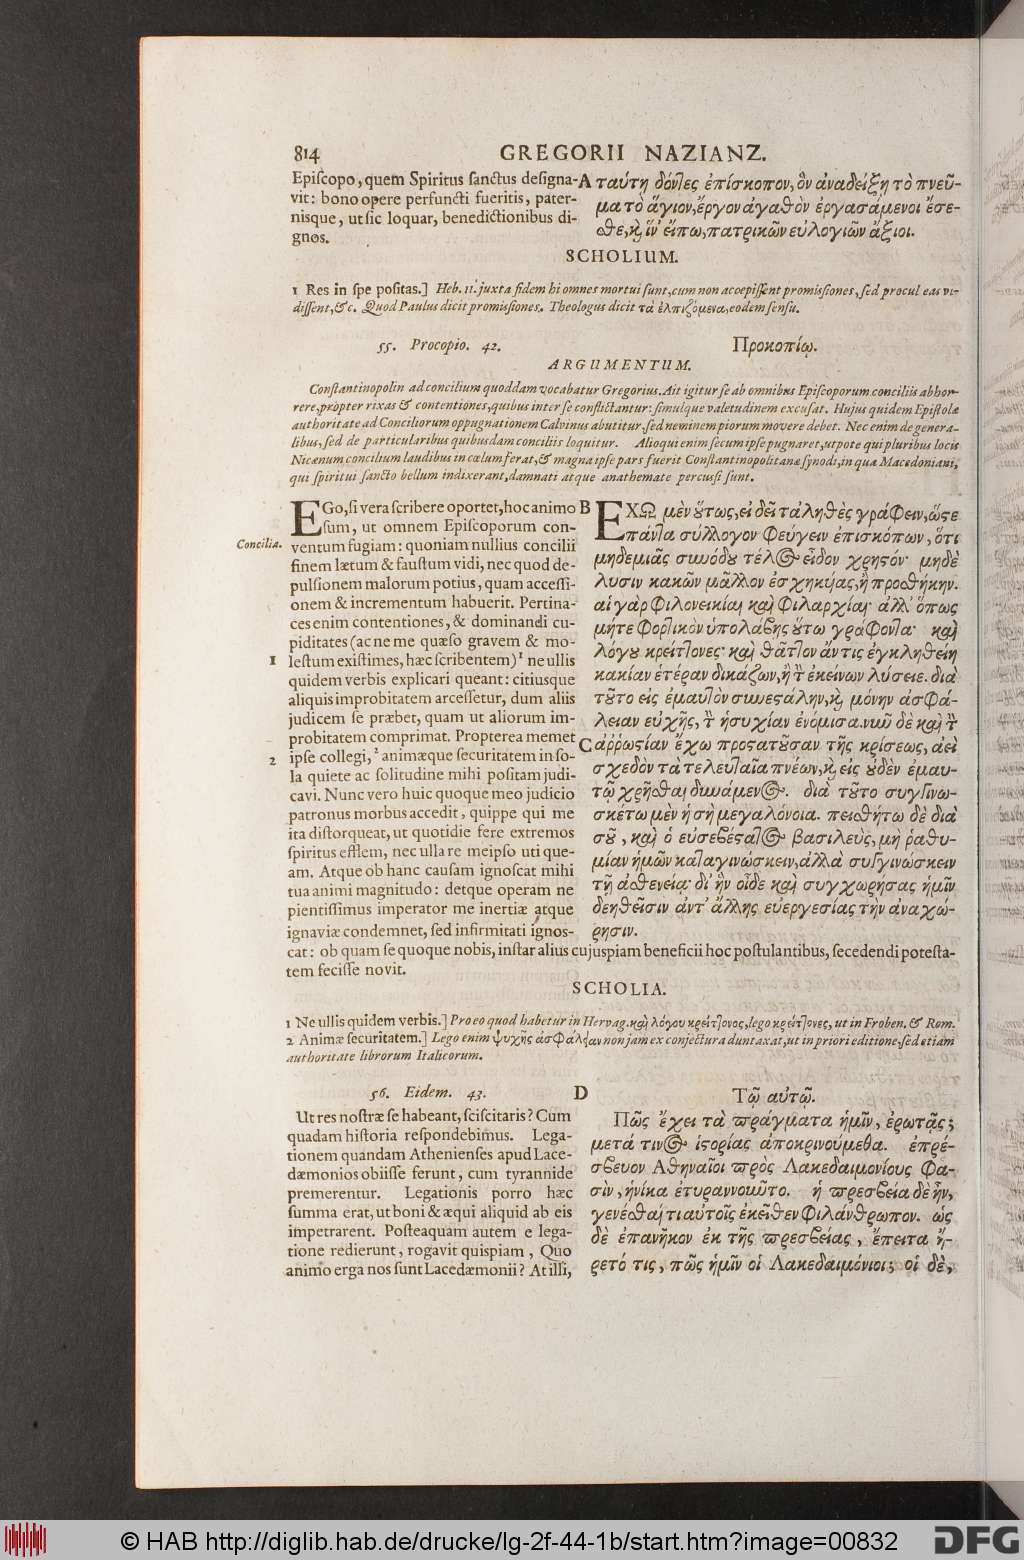 814
GREGORII NAZIANZ.
Episcopo, quem Spiritus sanctus designa-
vit: bono opere perfuncti fueritis, pater-
nisque, ut sic loquar, benedictionibus di-
gnos.
A ταύτῃ δόντες ἐπίσκοπον, ὃν ἀναδείξῃ τὸ πνεῦ-
μα τὸ ἅγιον, ἔργον ἀγαθὸν ἐργασάμενοι ἔσε-
σθε, καὶ ἵν' εἴπω, πατρικῶν εὐλογιῶν ἄξιοι.
SCHOLIUM.
1 Res in spe positas.] Heb. 11. juxta fidem hi omnes mortui sunt, cum non accepissent promissiones, sed procul eas vi-
dissent, &c. Quod Paulus dicit promissiones. Theologus dicit τὰ ἐλπιζόμενα, eodem sensu.
55. Procopio. 42.
Προκοπίῳ.
ARGUMENTUM.
Constantinopolin ad concilium quoddam vocabatur Gregorius. Ait igitur se ab omnibus Episcoporum conciliis abhor-
rere, propter rixas & contentiones, quibus inter se conflictantur: simulque valetudinem excusat. Hujus quidem Epistolæ
authoritate ad Conciliorum oppugnationem Calvinus abutitur, sed neminem piorum movere debet. Nec enim de genera-
libus, sed de particularibus quibusdam conciliis loquitur. Alioqui enim secum ipse pugnaret, utpote qui pluribus locis
Nicænum concilium laudibus in cœlum ferat, & magna ipse pars fuerit Constantinopolitanæ synodi, in qua Macedoniani,
qui spiritui sancto bellum indixerant, damnati atque anathemate percussi sunt.
EGo, si vera scribere oportet, hoc animo
sum, ut omnem Episcoporum con-
Concilia.
ventum fugiam: quoniam nullius concilii
finem lætum & faustum vidi, nec quod de-
pulsionem malorum potius, quam accessi-
onem & incrementum habuerit. Pertina-
ces enim contentiones, & dominandi cu-
piditates (ac ne me quæso gravem & mo-
1 lestum existimes, hæc scribentem) 1 ne ullis
quidem verbis explicari queant: citiusque
aliquis improbitatem arcessetur, dum aliis
judicem se præbet, quam ut aliorum im-
probitatem comprimat. Propterea memet
2 ipse collegi, 2 animæque securitatem in so-
la quiete ac solitudine mihi positam judi-
cavi. Nunc vero huic quoque meo judicio
patronus morbus accedit, quippe qui me
ita distorqueat, ut quotidie fere extremos
spiritus efflem, nec ulla re meipso uti que-
am. Atque ob hanc causam ignoscat mihi
tua animi magnitudo: detque operam ne
pientissimus imperator me inertiæ atque
ignaviæ condemnet, sed infirmitati ignos-
cat: ob quam se quoque nobis, instar alius cujuspiam beneficii hoc postulantibus, secedendi potesta-
tem fecisse novit.
B ΕΧΩ μὲν οὕτως, εἰ δεῖ τἀληθὲς γράφειν, ὥστε
πάντα σύλλογον φεύγειν ἐπισκόπων, ὅτι
μηδεμιᾶς συνόδου τέλος εἶδον χρηστόν· μηδὲ
λύσιν κακῶν μᾶλλον ἐσχηκυίας, ἢ προσθήκην.
αἱ γὰρ φιλονεικίαι καὶ φιλαρχίαι· ἀλλ' ὅπως
μήτε φορτικὸν ὑπολάβῃς οὕτω γράφοντα· καὶ
λόγου κρείττονες· καὶ θᾶττον ἄν τις ἐγκληθείη
κακίαν ἑτέραν δικάζων, ἢ τὴν ἐκείνων λύσειε. διὰ
τοῦτο εἰς ἐμαυτὸν συνεστάλην, καὶ μόνην ἀσφά-
λειαν εὐχῆς, τὴν ἡσυχίαν ἐνόμισα. νῦν δὲ καὶ τὴν
C ἀῤῥωστίαν ἔχω προστατοῦσαν τῆς κρίσεως, ἀεὶ
σχεδὸν τὰ τελευταῖα πνέων, καὶ εἰς οὐδὲν ἐμαυ-
τῷ χρῆσθαι δυνάμενος. διὰ τοῦτο συγγινω-
σκέτω μὲν ἡ σὴ μεγαλόνοια. πειθήτω δὲ διὰ
σοῦ, καὶ ὁ εὐσεβέστατος βασιλεὺς, μὴ ῥαθυ-
μίαν ἡμῶν καταγινώσκειν, ἀλλὰ συγγινώσκειν
τῇ ἀσθενείᾳ· δι' ἣν οἶδε καὶ συγχωρήσας ἡμῖν
δεηθεῖσιν ἀντ' ἄλλης εὐεργεσίας τὴν ἀναχώ-
ρησιν.
SCHOLIA.
1 Ne ullis quidem verbis.] Pro eo quod habetur in Hervag. καὶ λόγου κρείττονος, lego κρείττονες, ut in Froben. & Rom.
2 Animæ securitatem.] Lego enim ψυχῆς ἀσφάλειαν non jam ex conjectura duntaxat, ut in priori editione, sed etiam
authoritate librorum Italicorum.
56. Eidem. 43.
D
Τῷ αὐτῷ.
Ut res nostræ se habeant, sciscitaris? Cum
quadam historia respondebimus. Lega-
tionem quandam Athenienses apud Lace-
dæmonios obiisse ferunt, cum tyrannide
premerentur. Legationis porro hæc
summa erat, ut boni & æqui aliquid ab eis
impetrarent. Posteaquam autem e lega-
tione redierunt, rogavit quispiam, Quo
animo erga nos sunt Lacedæmonii? At illi,
Πῶς ἔχει τὰ πράγματα ἡμῖν, ἐρωτᾷς;
μετά τινος ἱστορίας ἀποκρινούμεθα. ἐπρέ-
σβευον Ἀθηναῖοι πρὸς Λακεδαιμονίους φα-
σὶν, ἡνίκα ἐτυραννοῦντο. ἡ πρεσβεία δὲ ἦν,
γενέσθαι τι αὐτοῖς ἐκεῖθεν φιλάνθρωπον. ὡς
δὲ ἐπανῆκον ἐκ τῆς πρεσβείας, ἔπειτα ἤ-
ρετό τις, πῶς ἡμῖν οἱ Λακεδαιμόνιοι; οἱ δὲ,
© HAB http://diglib.hab.de/drucke/lg-2f-44-1b/start.htm?image=00832
DFG